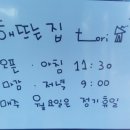 해뜨는 집 tori
오픈 · 아침 11:30
마감 · 저녁 9:00
매주 월요일은 정기휴일